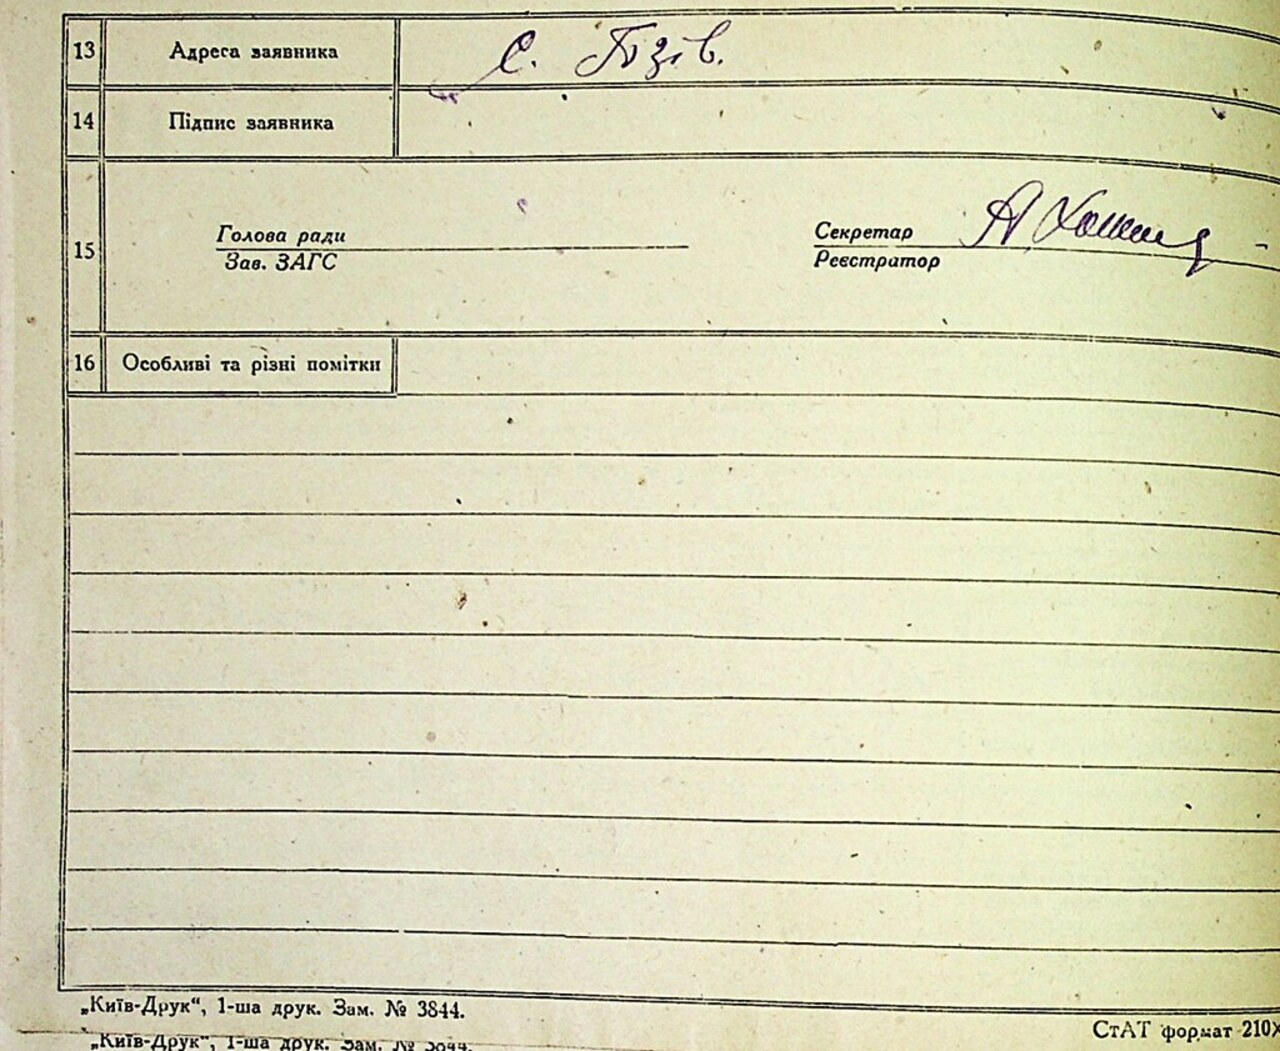 13 Адреса заявника С. Пізів.
14 Підпис заявника
15 Голова ради
Зав. ЗАГС
Секретар
Реєстратор
16 Особливі та різні помітки
„Київ-Друк“, 1-ша друк. Зам. № 3844.
СтАТ формат 210X
„Київ-Друк“, 1-ша друк. Зам. № 3844.